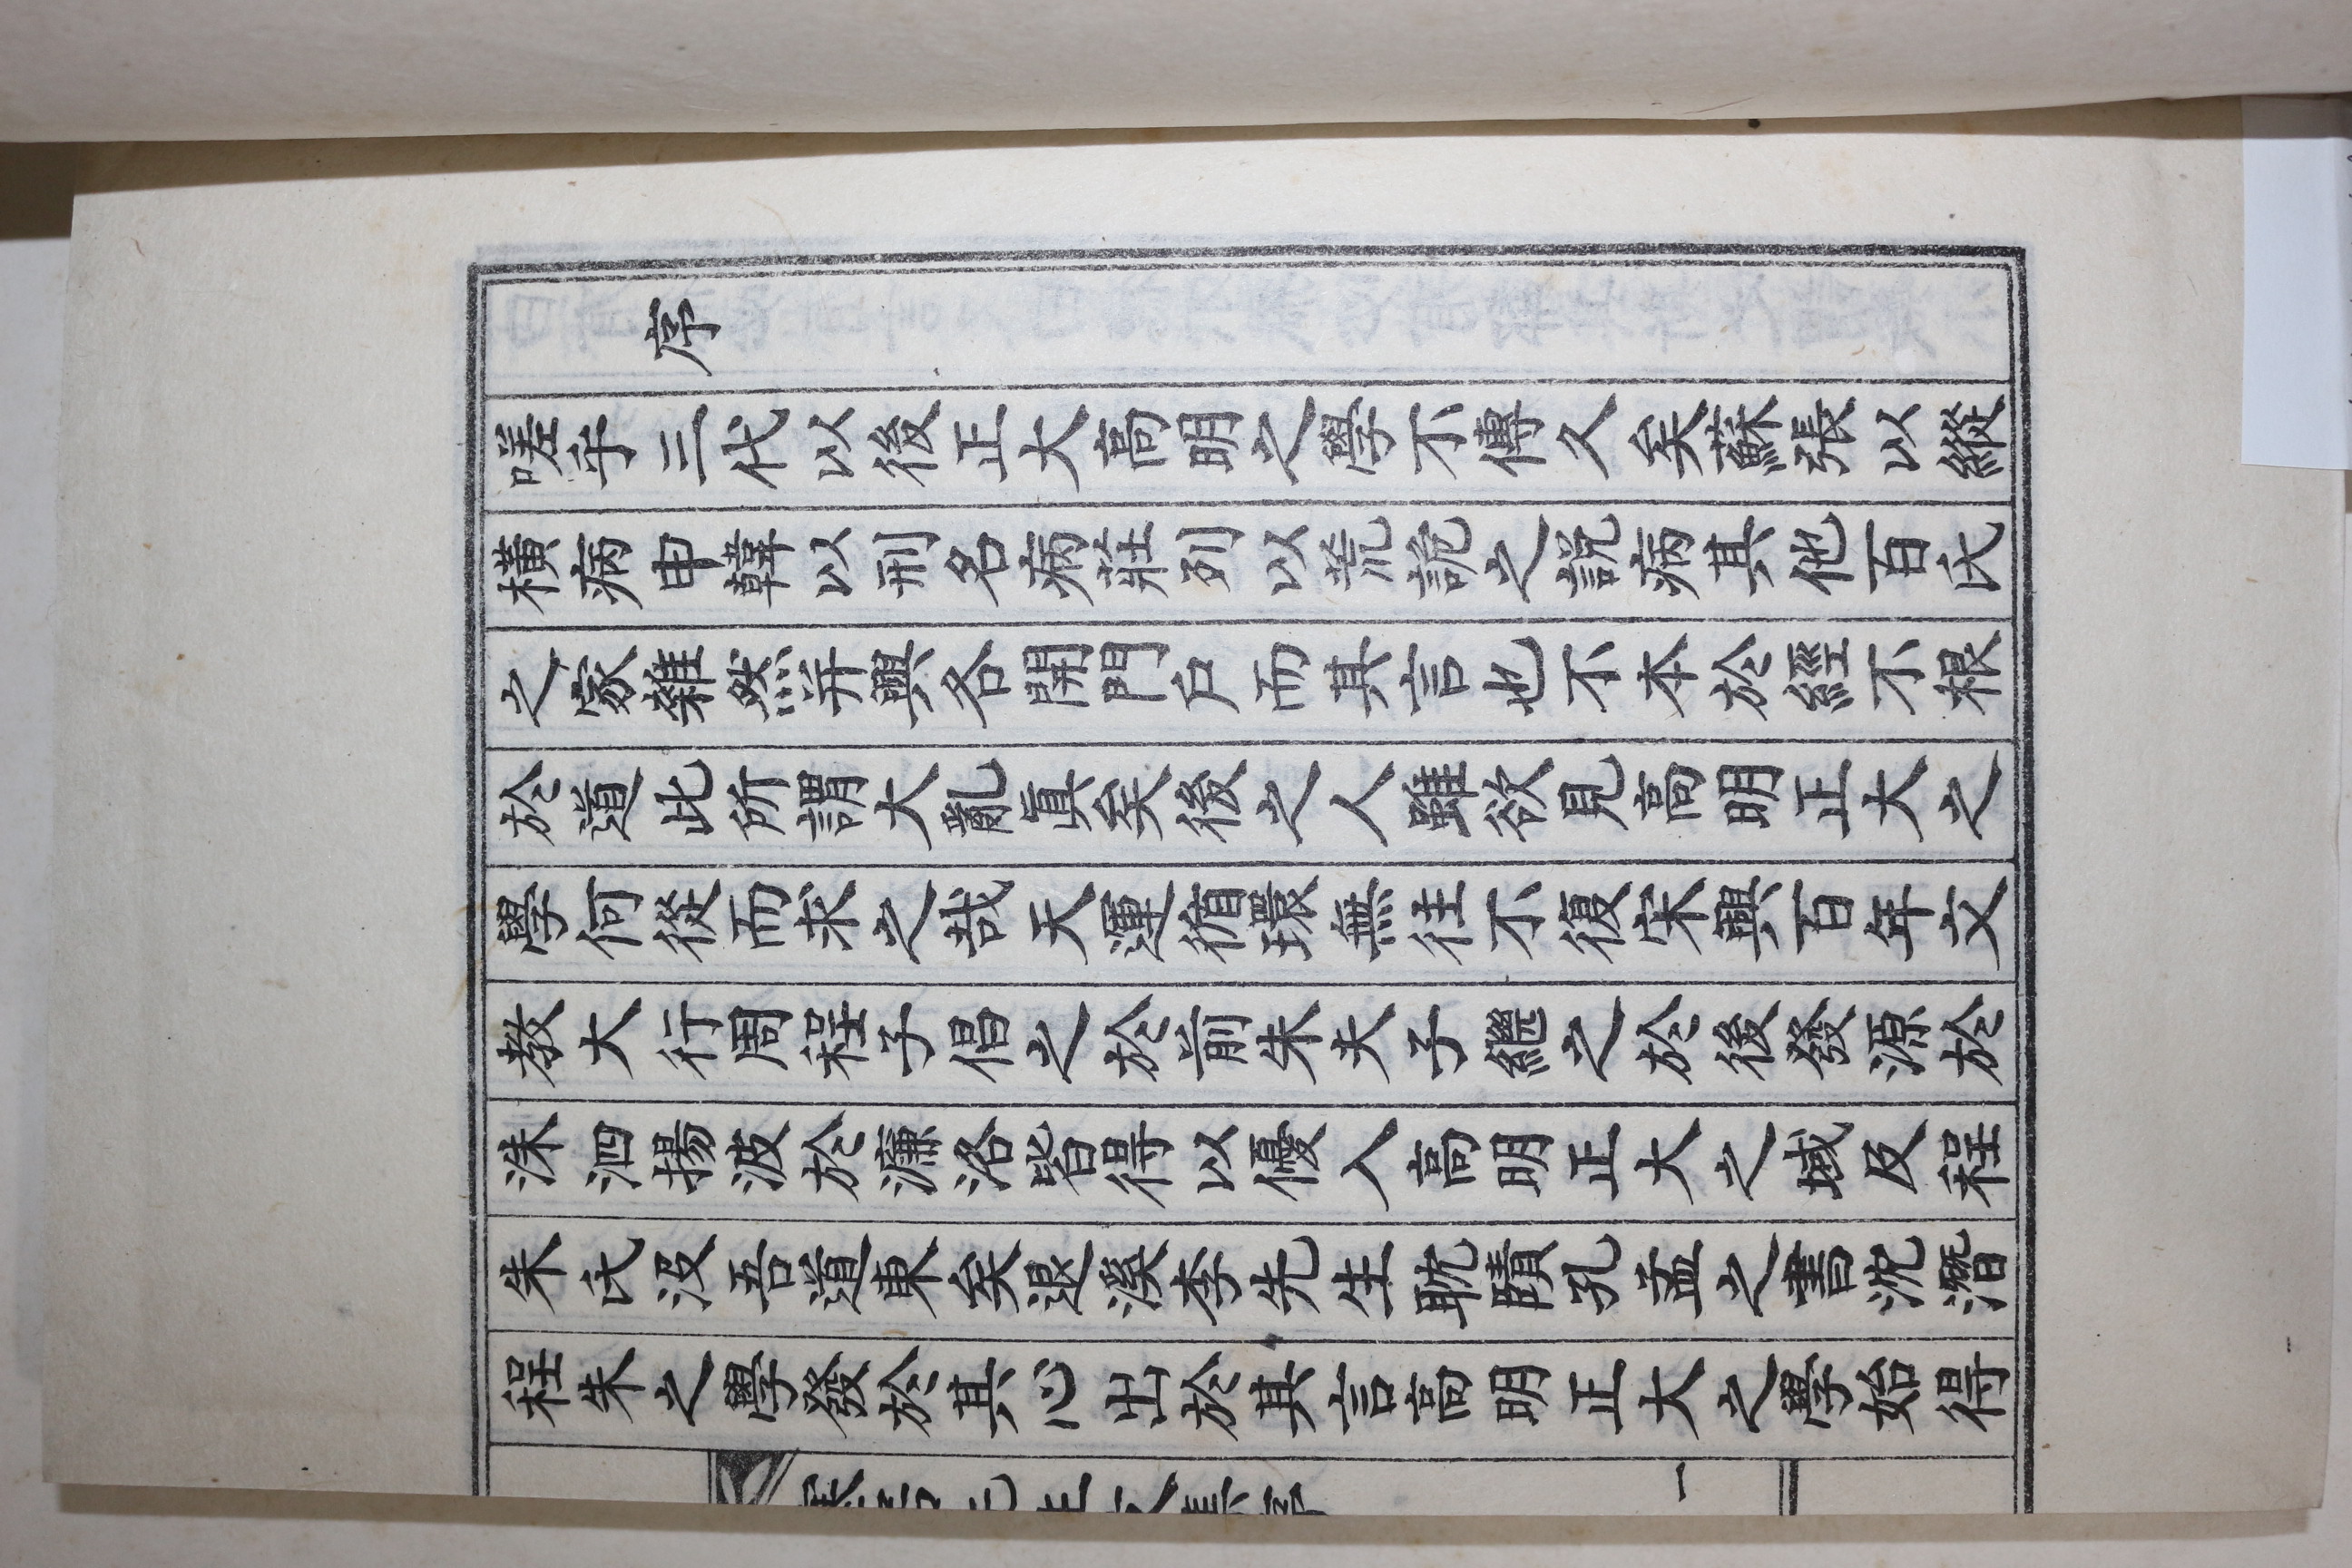 序
嗟乎三代以後正大高明之學不傳久矣蘇張以縱
橫病申韓以刑名病莊列以荒詭之説病其他百氏
之家雜然并興各開門戶而其言也不本於經不根
於道此所謂大亂眞矣後之人雖欲見高明正大之
學何從而求之哉天運循環無往不復宋興百年文
教大行周程子倡之於前朱夫子繼之於後發源於
洙泗揚波於濂洛皆得以優入高明正大之域及程
朱氏沒吾道東矣退溪李先生耽賾孔孟之書沈潛
程朱之學發於其心出於其言高明正大之學始得
先生文集序
一